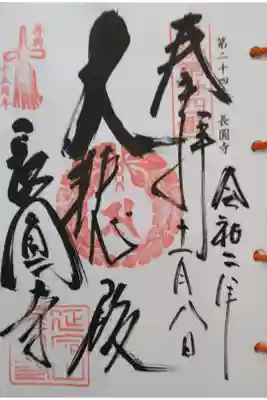 第二十四番 長圓寺
令和二年
十一月八日
奉拝
大悲殿
長圓寺